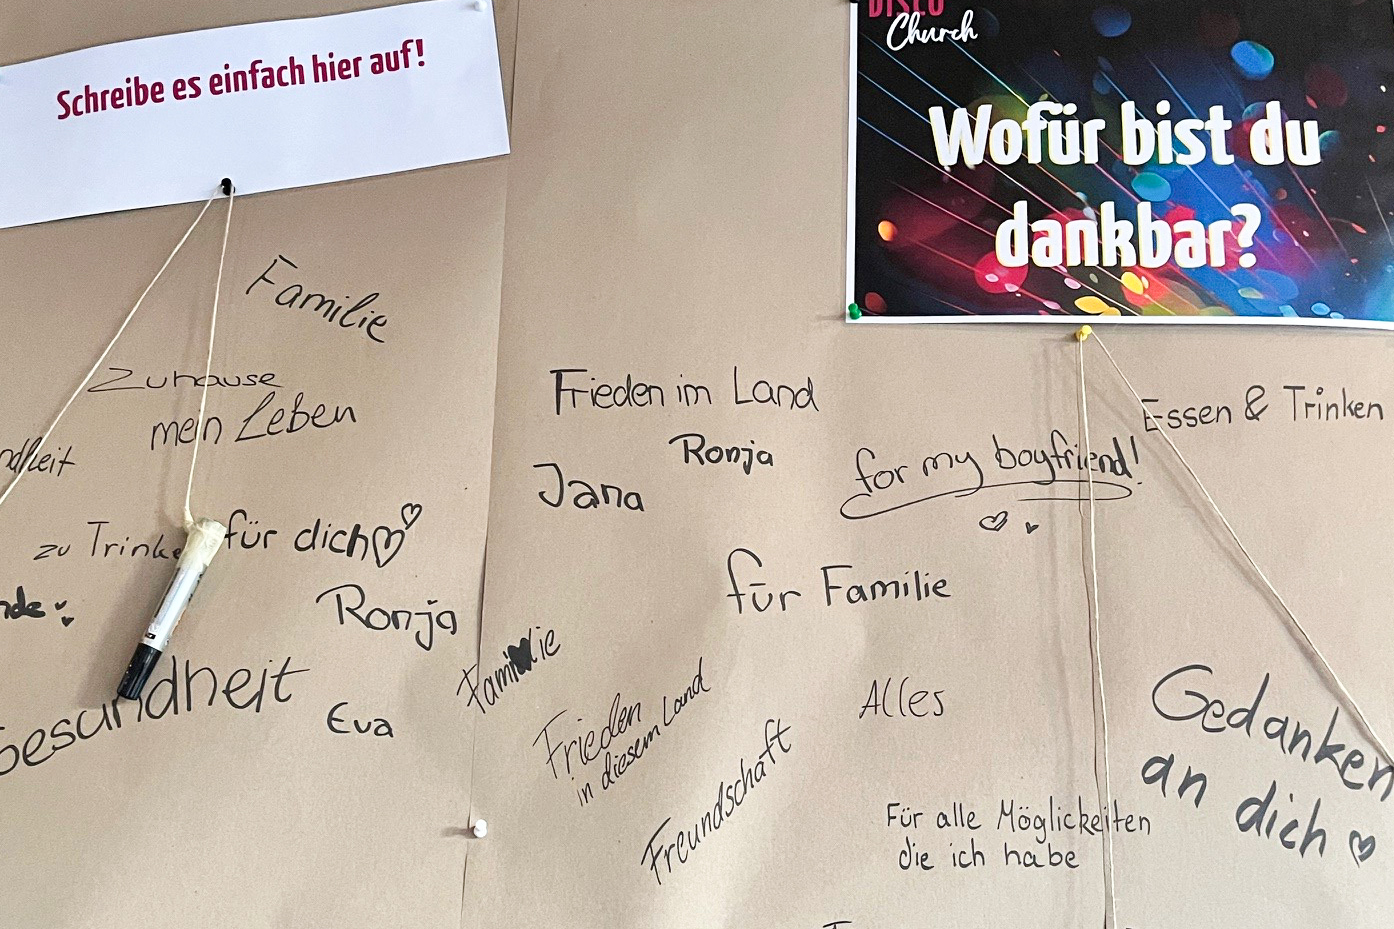 Schreibe es einfach hier auf!
DISCO
Church
Wofür bist du
dankbar?
Familie
Zuhause
mein Leben
Frieden im Land
Ronja
Jana
for my boyfriend!
Essen & Trinken
zu Trinke
für dich
Ronja
Gesundheit
Eva
Familie
für Familie
Frieden
in diesem Land
Freundschaft
Alles
Gedanken
an dich
Für alle Möglichkeiten
die ich habe